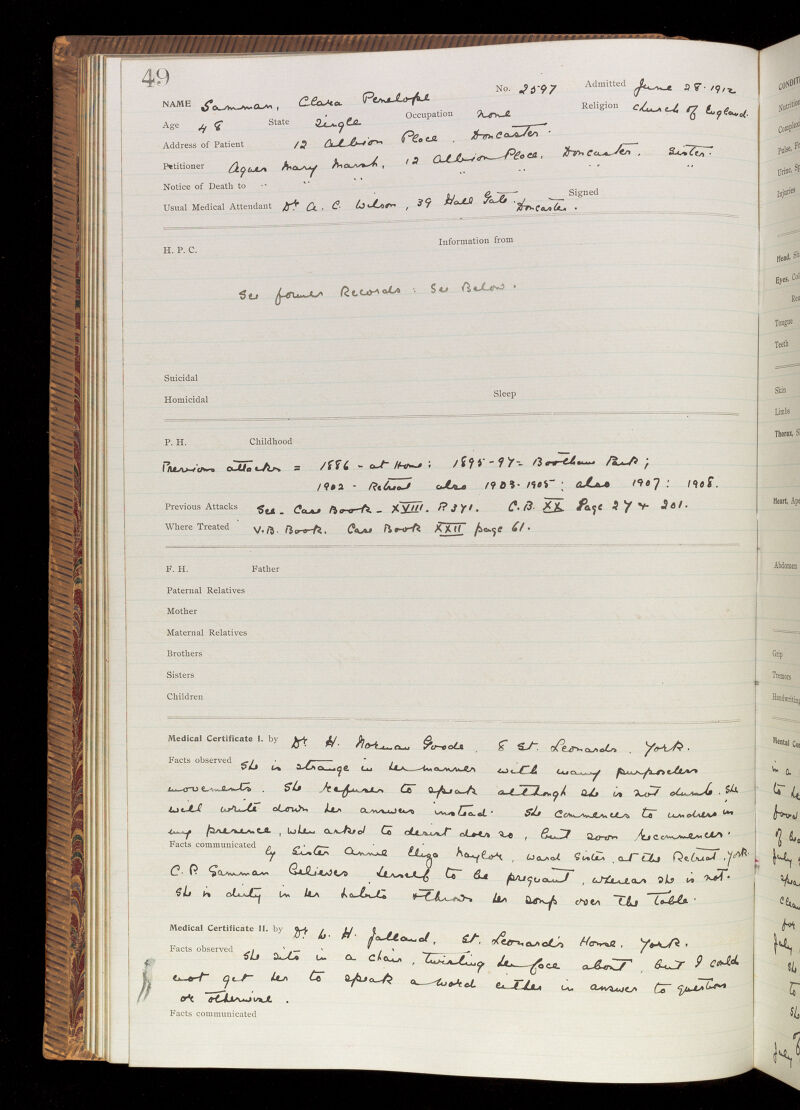 49
No. 2597 Admitted June 28. 1912
NAME Samman, Clara Penelope
Age 48 State Single Occupation None Religion Church of England.
Address of Patient 12 Albion Place, Doncaster.
Petitioner Agnes Mary Marsh, 12 Albion Place, Doncaster. Sister.
Notice of Death to " " " " " "
Usual Medical Attendant Dr A. C. Wilson, 39 Hall Gate. Doncaster. Signed
H. P. C. Information from
See former Records: See Below.
Suicidal
Homicidal Sleep
P. H. Childhood
Previous attacks = 1886 - at Home: 1895-97 = Bootham Park;
1902 - Retreat also 1903-1905: also 1907: 1908.
Previous Attacks See - Case Book - XVIII. P 371. C.B. XX Page 27 & 201.
Where Treated V.B. Book. Case Book XXII page 61.
F. H. Father
Paternal Relatives
Mother
Maternal Relatives
Brothers
Sisters
Children
Medical Certificate I. by Dr H. Norman Goode, 8 St. Leonards, York.
Facts observed She is strange in her manner with many purposeless
movements. She refuses to speak although she is not dumb. She
will write down her answers instead. She commences to undress in
my presence, when asked to desist does so, but soon recommences.
Facts communicated by Sister Annie Eliza Naylor, ward Sister, at the Retreat, York.
C. P. Samman believes herself to be pregnant, whereas she is not.
She is dirty in her habits & throws her soup over the table.
Medical Certificate II. by Dr L. H. Jalland, St. Leonard's House, York.
Facts observed She sits in a chair, twirling her face about, but I could
not get her to speak a word either in answer to question
or otherwise.
Facts communicated
CONDIT
Nutrition
Complexi
Pulse, Fr
Urine, Sp
Injuries
Head, Sh
Eyes, Col
Rea
Tongue
Teeth
Skin
Limbs
Thorax, S
Heart, Ape
Abdomen
Grip
Tremors
Handwriting
Mental Con
in a
to he
July
July
She
to
July